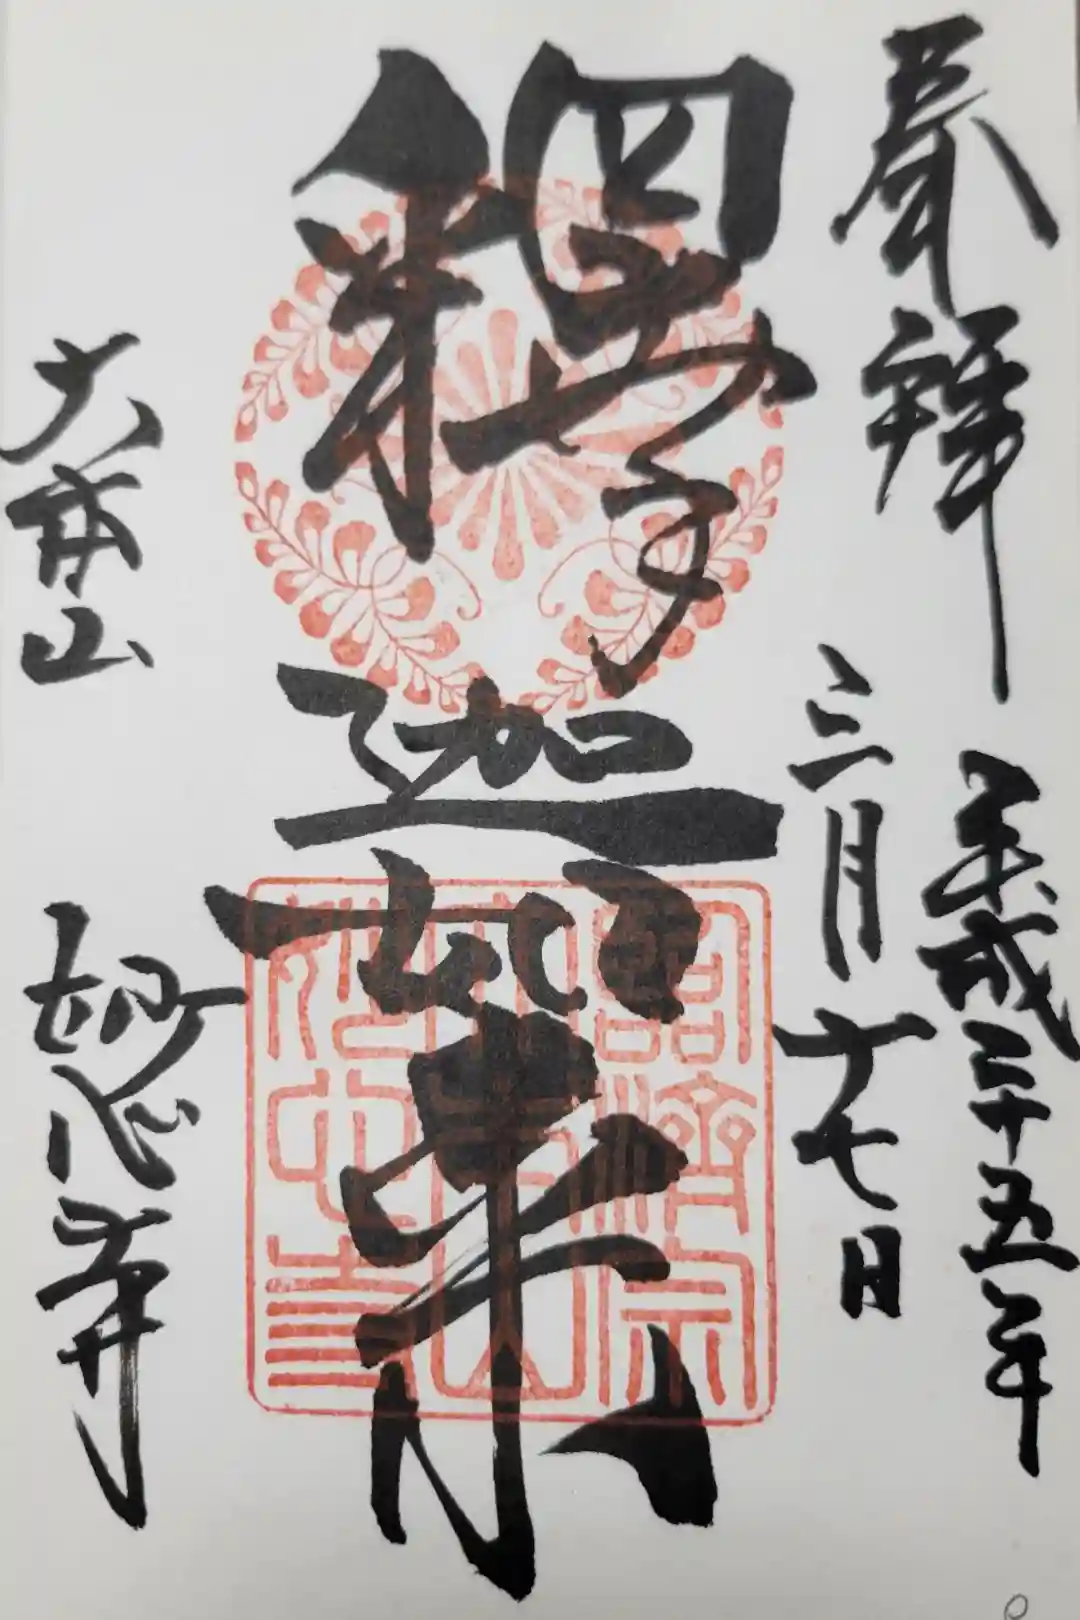 奉拝
平成二十五年
三月十七日
釋迦如来
臨濟宗
大本山
妙心寺
大本山 妙心寺